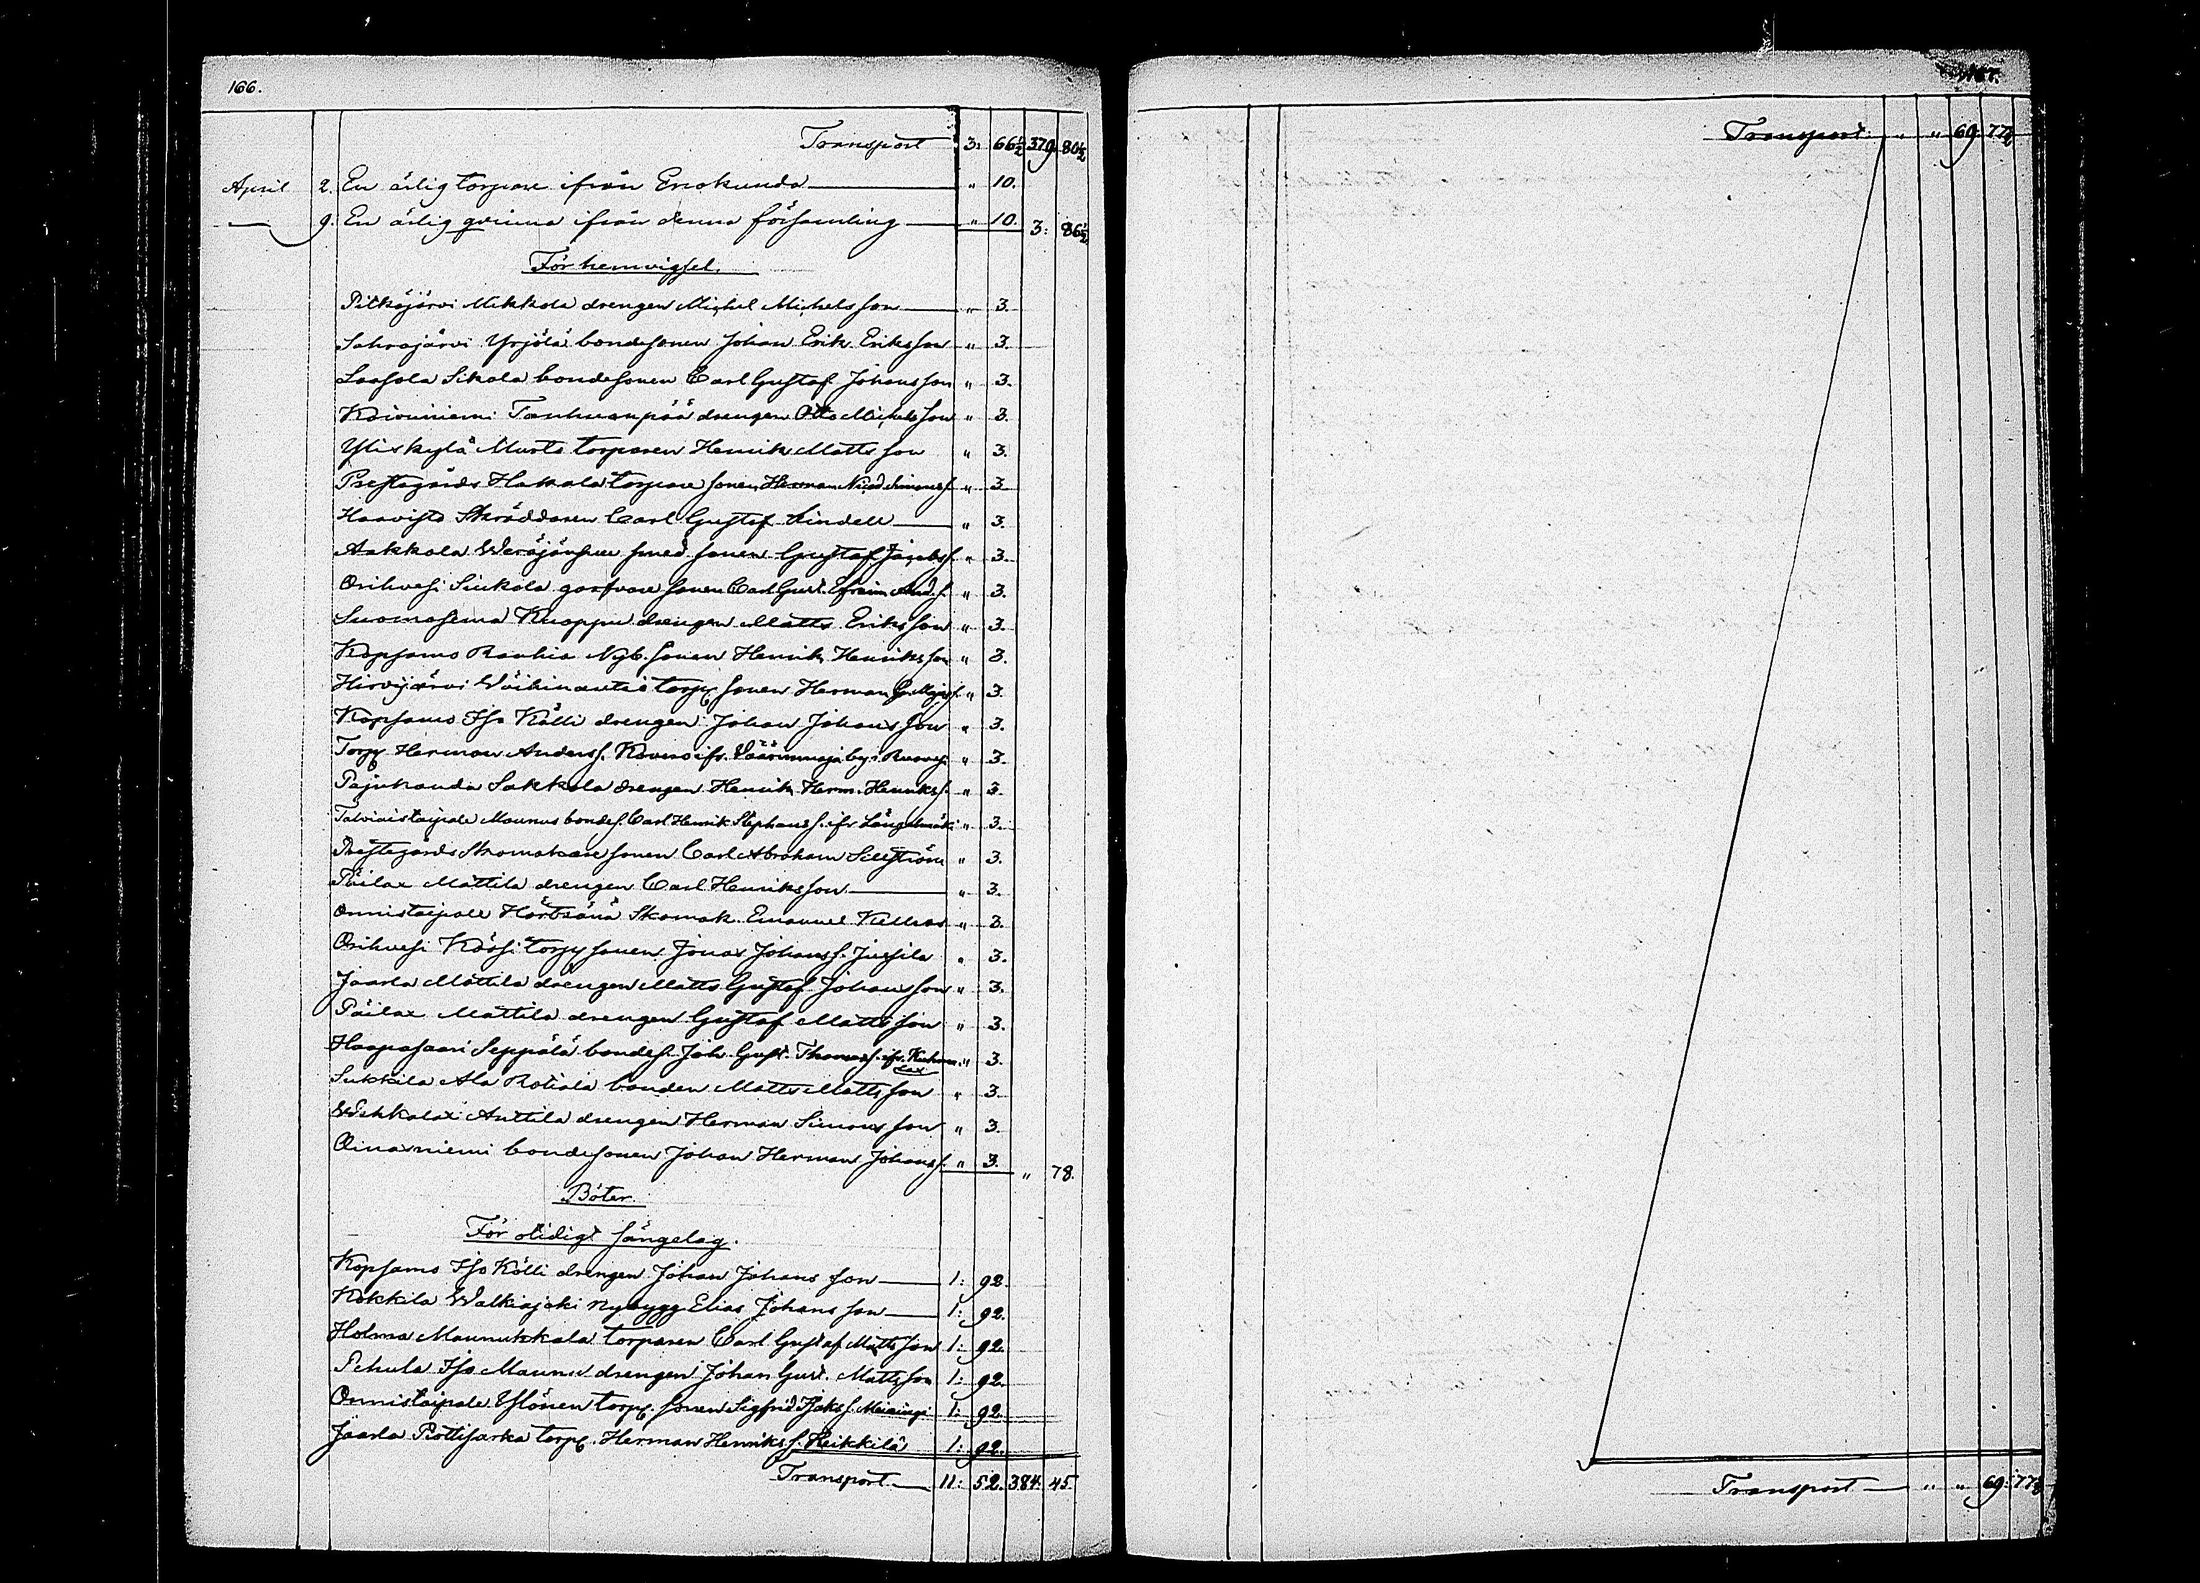 166.
Transport 3: 66½ 379. 80½
April 2. En ärlig torpare ifrån Eräkunda " 10.
— 9. En ärlig qvinna ifrån denna församling " 10. 3: 86½
För hemvigsel.
Pitkäjärvi Mikkola drengen Michel Michelsson " 3.
Sahrajärvi Yrjölä bondesonen Johan Erik Eriksson " 3.
Laasola Sikala bondesonen Carl Gustaf Johansson " 3.
Koivuniemi Tanhuanpää drengen Otto Michelsson " 3.
Yliskylä Murto torparen Henrik Mattsson " 3.
Prestegårds Hakala torpare sonen Herman Nicod. Simonss. " 3.
Haavisto Skräddaren Carl Gustaf Lindell " 3.
Aakkola Weräjänsuu smed sonen Gustaf Jacobss. " 3.
Orihvesi Siukola garfvare sonen Carl Gust. Efraim And.s. " 3.
Suomasema Kuoppu drengen Matts Eriksson " 3.
Kopsamo Rauhia Nyb. sonen Henrik Henriksson " 3.
Hirvijärvi torp. sonen Herman G. " 3.
Kopsamo Iso Kölli drengen Johan Johansson " 3.
Torp. Herman Anderss. Kovero ifr. Väärinmaja by i Ruovesi " 3.
Pajukanda Sakkola drengen Henrik Herm. Henrikss. " 3.
Talviaistaipale Maunus bondes. Carl Henrik Stephanss. ifr. Längelmäki " 3.
Prestegårds Skomakare sonen Carl Abraham Sellström " 3.
Päilax Mattila drengen Carl Henriksson " 3.
Onnistaipale Härtsänä Skomak. Emanuel " 3.
Orihvesi Kärsi torp. sonen Jonas Johanss. Jussila " 3.
Jaarla Mattila drengen Matts Gustaf Johansson " 3.
Päilax Mattila drengen Gustaf Mattsson " 3.
Haapasaari Seppälä bondes. Joh. Gust. Thomass. ifr. Kuhma-
lax " 3.
Sukkila Ala Rotiala bonden Matts Mattsson " 3.
Wehkalax Anttila drengen Herman Simonsson " 3.
Oinasniemi bondesonen Johan Herman Johanss. " 3. " 78.
Böter.
För otidigt sängelag.
Kopsamo Iso Kölli drengen Johan Johansson 1: 92.
Kokkila Walkiajoki nybygg. Elias Johansson 1: 92.
Holma Maunukkala torparen Carl Gustaf Mattsson 1: 92.
Pehula Iso Maunu drengen Johan Gust. Mattsson 1: 92.
Onnistaipale Ylönen torp. sonen Sigfrid Isakss. 1: 92.
Jaarla Rottisarka torp. Herman Henrikss. Heikkilä 1: 92.
Transport 11: 52. 384. 45.
167.
Transport " " 69: 77½
Transport " " 69: 77½